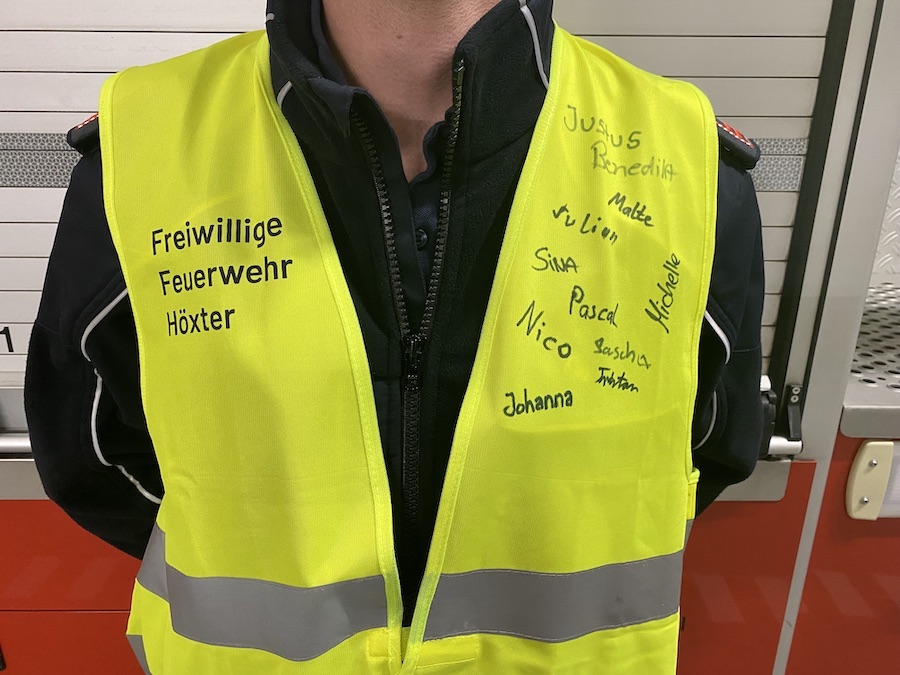 Freiwillige
Feuerwehr
Höxter
Justus
Benedikt
Malte
Julian
SiNA
Michelle
Pascal
Nico
Sascha
Johanna
1